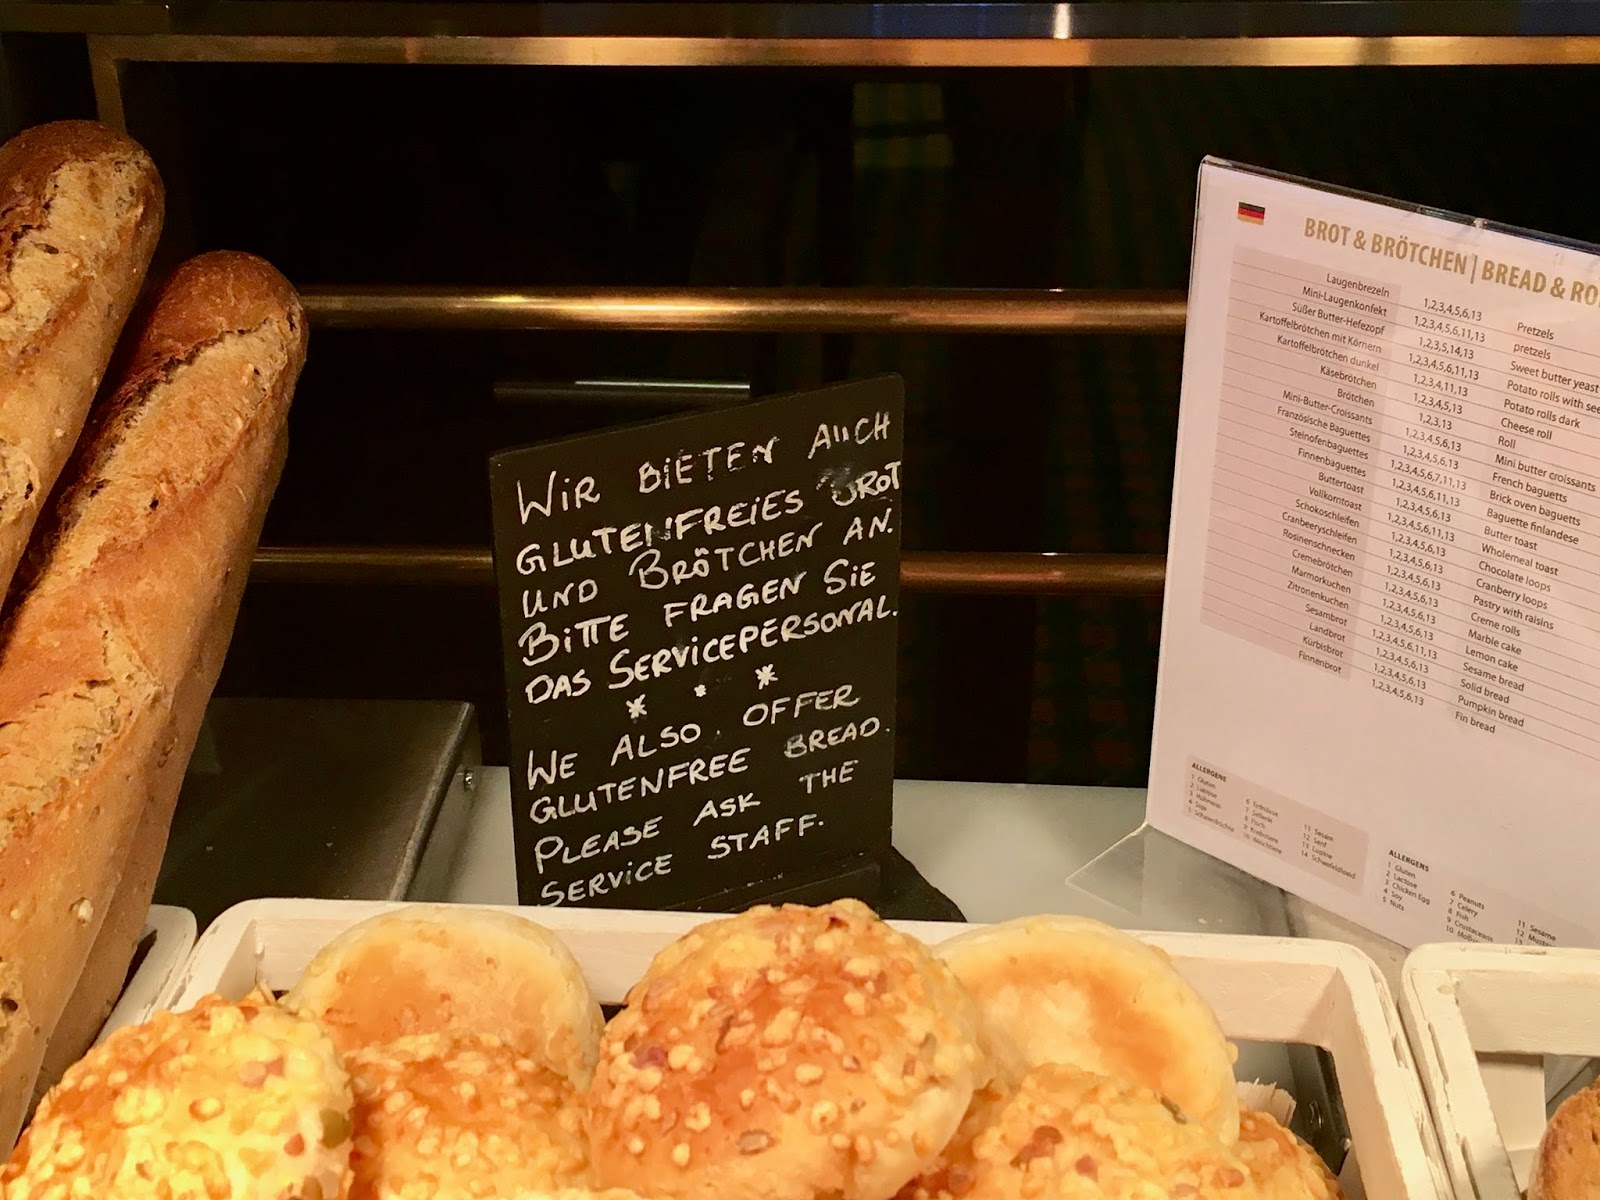 WIR BIETEN AUCH
GLUTENFREIES BROT
UND BRÖTCHEN AN.
BITTE FRAGEN SIE
DAS SERVICEPERSONAL.
* * *
WE ALSO OFFER
GLUTENFREE BREAD.
PLEASE ASK THE
SERVICE STAFF.
BROT & BRÖTCHEN | BREAD & RO
Laugenbrezeln 1,2,3,4,5,6,13 Pretzels
Mini-Laugenkonfekt 1,2,3,4,5,6,11,13 pretzels
Süßer Butter-Hefezopf 1,2,3,5,14,13 Sweet butter yeast
Kartoffelbrötchen mit Körnern 1,2,3,4,5,6,11,13 Potato rolls with see
Kartoffelbrötchen dunkel 1,2,3,4,11,13 Potato rolls dark
Käsebrötchen 1,2,3,4,5,13 Cheese roll
Brötchen 1,2,3,13 Roll
Mini-Butter-Croissants 1,2,3,4,5,6,13 Mini butter croissants
Französische Baguettes 1,2,3,4,5,6,13 French baguetts
Steinofenbaguettes 1,2,3,4,5,6,7,11,13 Brick oven baguetts
Finnenbaguettes 1,2,3,4,5,6,11,13 Baguette finlandese
Buttertoast 1,2,3,4,5,6,13 Butter toast
Vollkorntoast 1,2,3,4,5,6,11,13 Wholemeal toast
Schokoschleifen 1,2,3,4,5,6,13 Chocolate loops
Cranbeeryschleifen 1,2,3,4,5,6,13 Cranberry loops
Rosinenschnecken 1,2,3,4,5,6,13 Pastry with raisins
Cremebrötchen 1,2,3,4,5,6,13 Creme rolls
Marmorkuchen 1,2,3,4,5,6,13 Marble cake
Zitronenkuchen 1,2,3,4,5,6,13 Lemon cake
Sesambrot 1,2,3,4,5,6,11,13 Sesame bread
Landbrot 1,2,3,4,5,6,13 Solid bread
Kürbisbrot 1,2,3,4,5,6,13 Pumpkin bread
Finnenbrot 1,2,3,4,5,6,13 Fin bread
ALLERGENS
1 Gluten 6 Erdnüsse 11 Sesam
2 Laktose 7 Sellerie 12 Senf
3 Hühnerei 8 Fisch 13 Lupine
4 Soja 9 Krebstiere 14 Schwefeldioxid
5 Schalenfrüchte 10 Weichtiere
ALLERGENS
1 Gluten 6 Peanuts 11 Sesame
2 Lactose 7 Celery 12
3 Chicken Egg 8 Fish 13
4 Soy 9 Crustaceans
5 Nuts 10